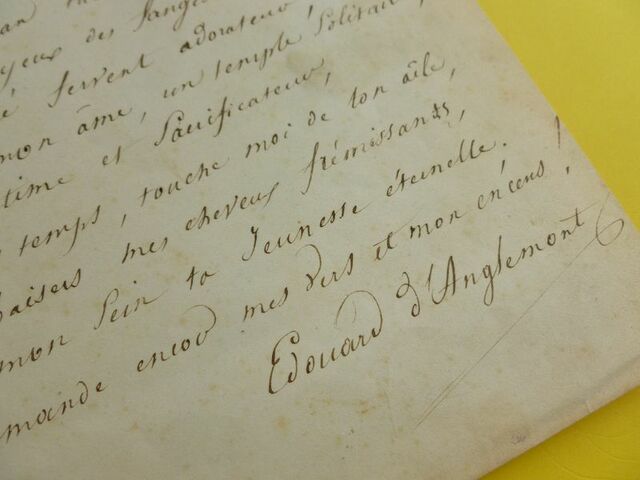 yeux des
fervent adorateur,
mon âme, un temple solitaire,
time et sacrificateur,
temps, touche moi de ton aîle,
baisers mes cheveux frémissants,
mon sein ta jeunesse éternelle.
mande encor mes vers et mon encens !
Edouard d'Anglemont